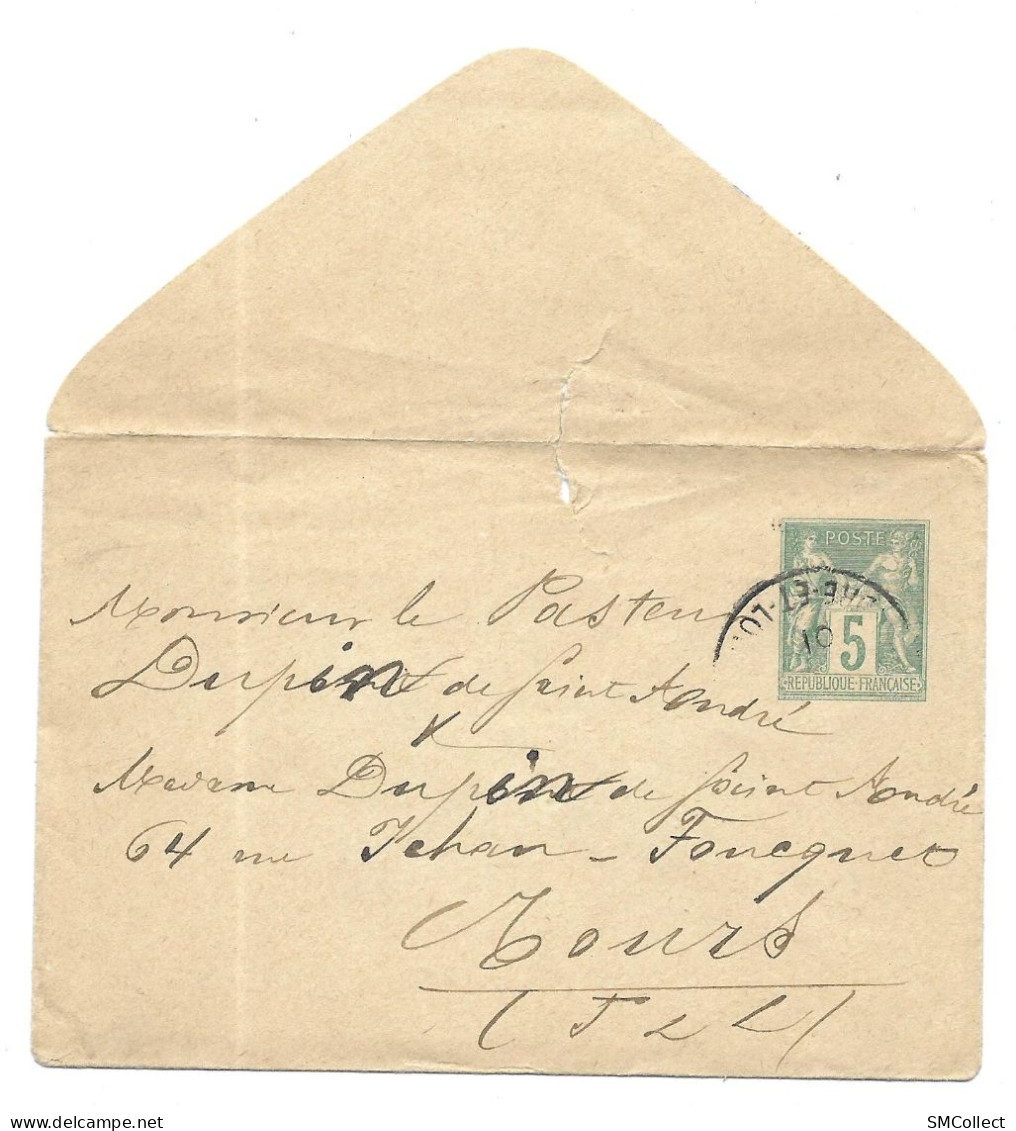 POSTE
5
RÉPUBLIQUE·FRANÇAISE
10
Monsieur le Pasteur
Dupin de Saint André
Madame Dupin de Saint André
64 rue Jehan - Foucquet
Tours
( I & L )
SMCollect